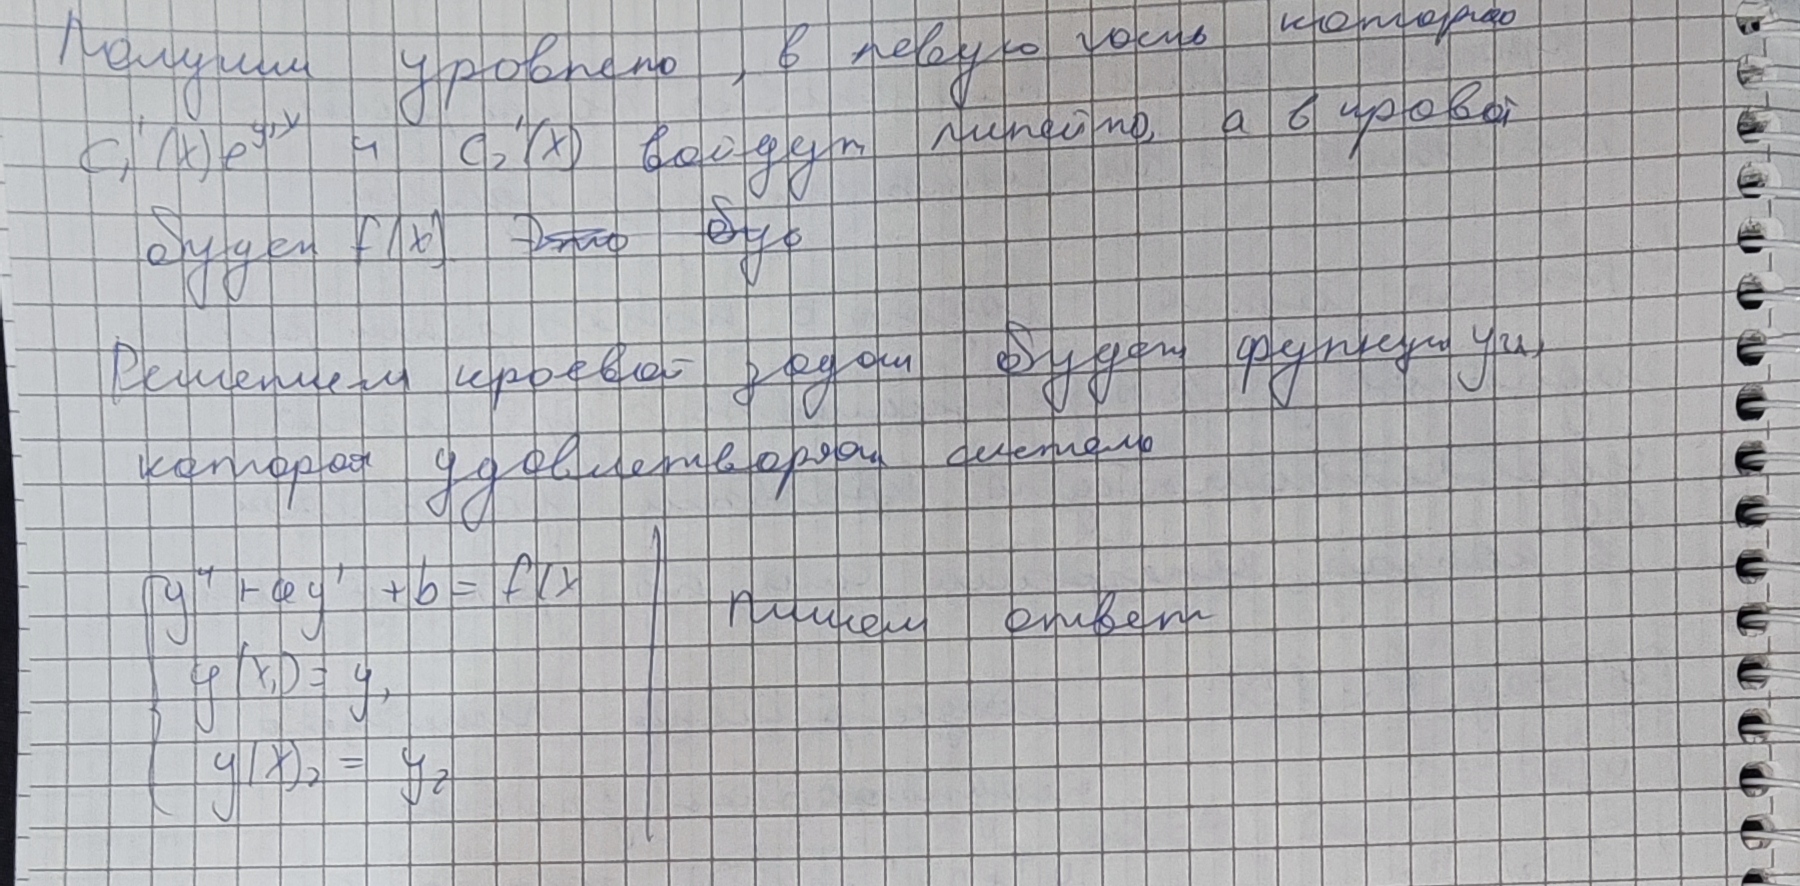 Получим уровнено, в левую часть которого
C₁'(x)e^y,x и C₂'(x) войдут линейно, а в провой
будет f(x) Это буд
Решением кроевой задачи будет функция yч,
которая удовлетворяет системе
y" + ay' + b = f(x
y(x₁) = y₁
y(x)₂ = y₂
пишем ответ